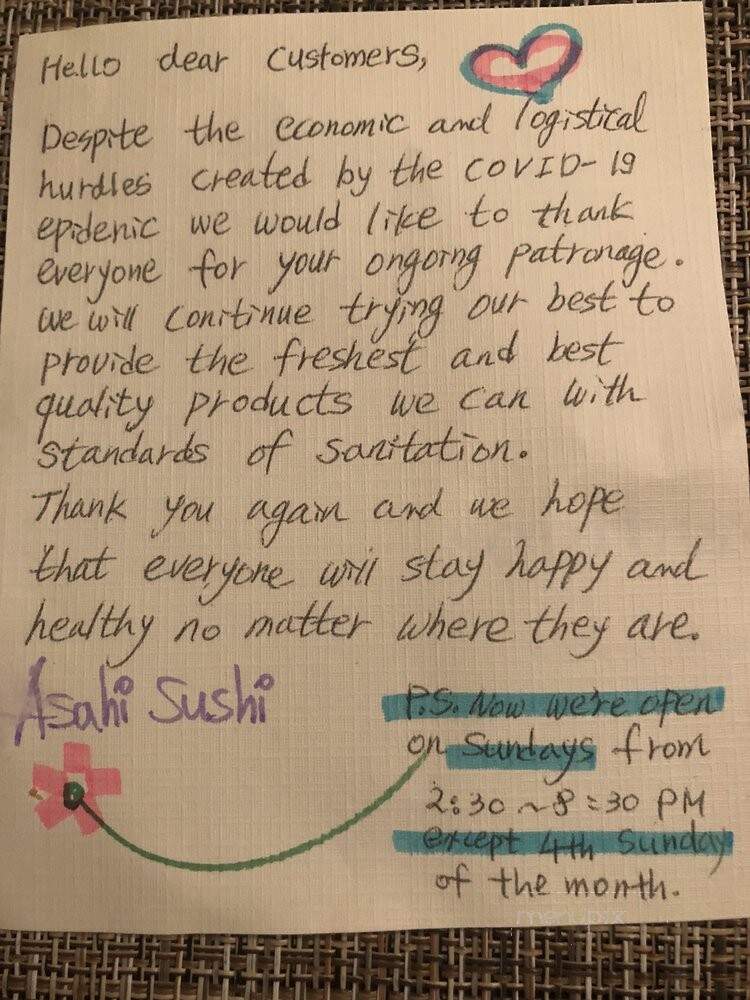 Hello dear Customers,
Despite the economic and logistical
hurdles created by the COVID-19
epidenic we would like to thank
everyone for your ongoing patronage.
we will conitinue trying our best to
provide the freshest and best
quality products we can with
standards of sanitation.
Thank you again and we hope
that everyone will stay happy and
healthy no matter where they are.
Asahi Sushi
P.S. Now we're open
on Sundays from
2:30 ~ 8:30 PM
except 4th Sunday
of the month.
menupix